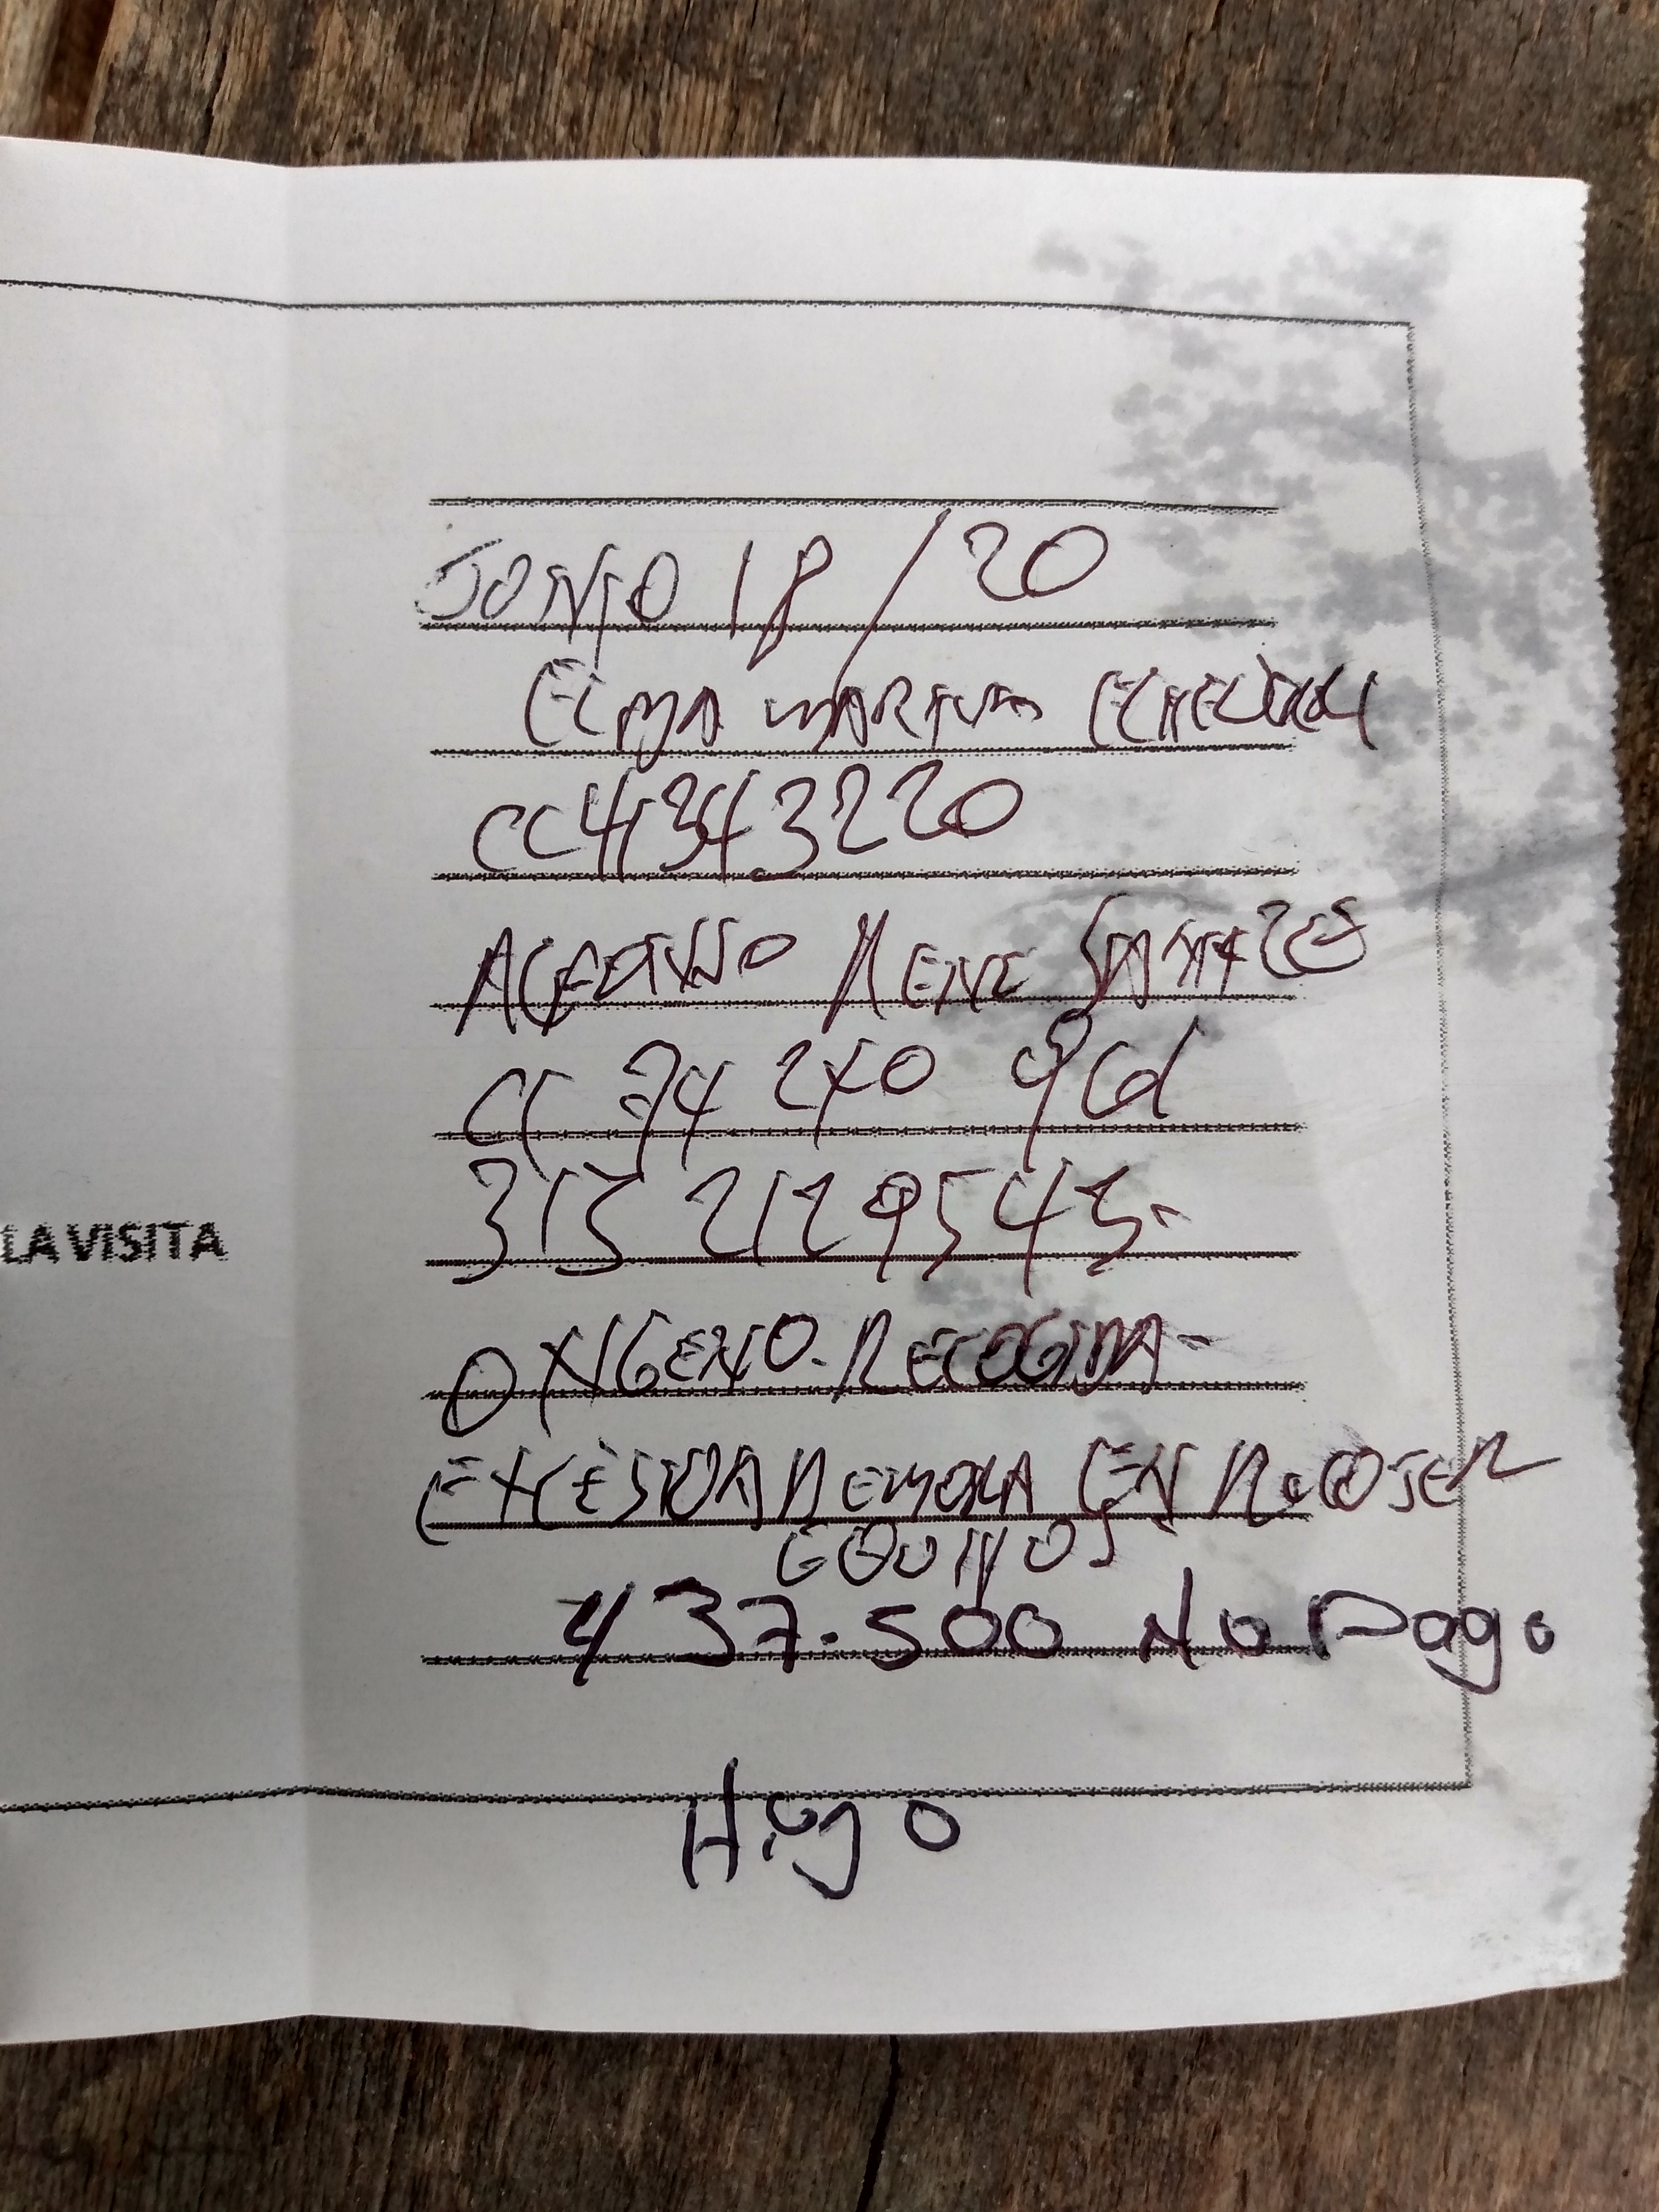 JUNIO 18/20
ELMA MARINA ECHEVERRI
CC 41343220
RENE
CC 74 240 961
313 2129545-
LA VISITA
OXIGENO. RECOGIDA-
EXCESIVA DEMORA EN RECOGER
EQUIPOS
437.500 No Pago
Hijo